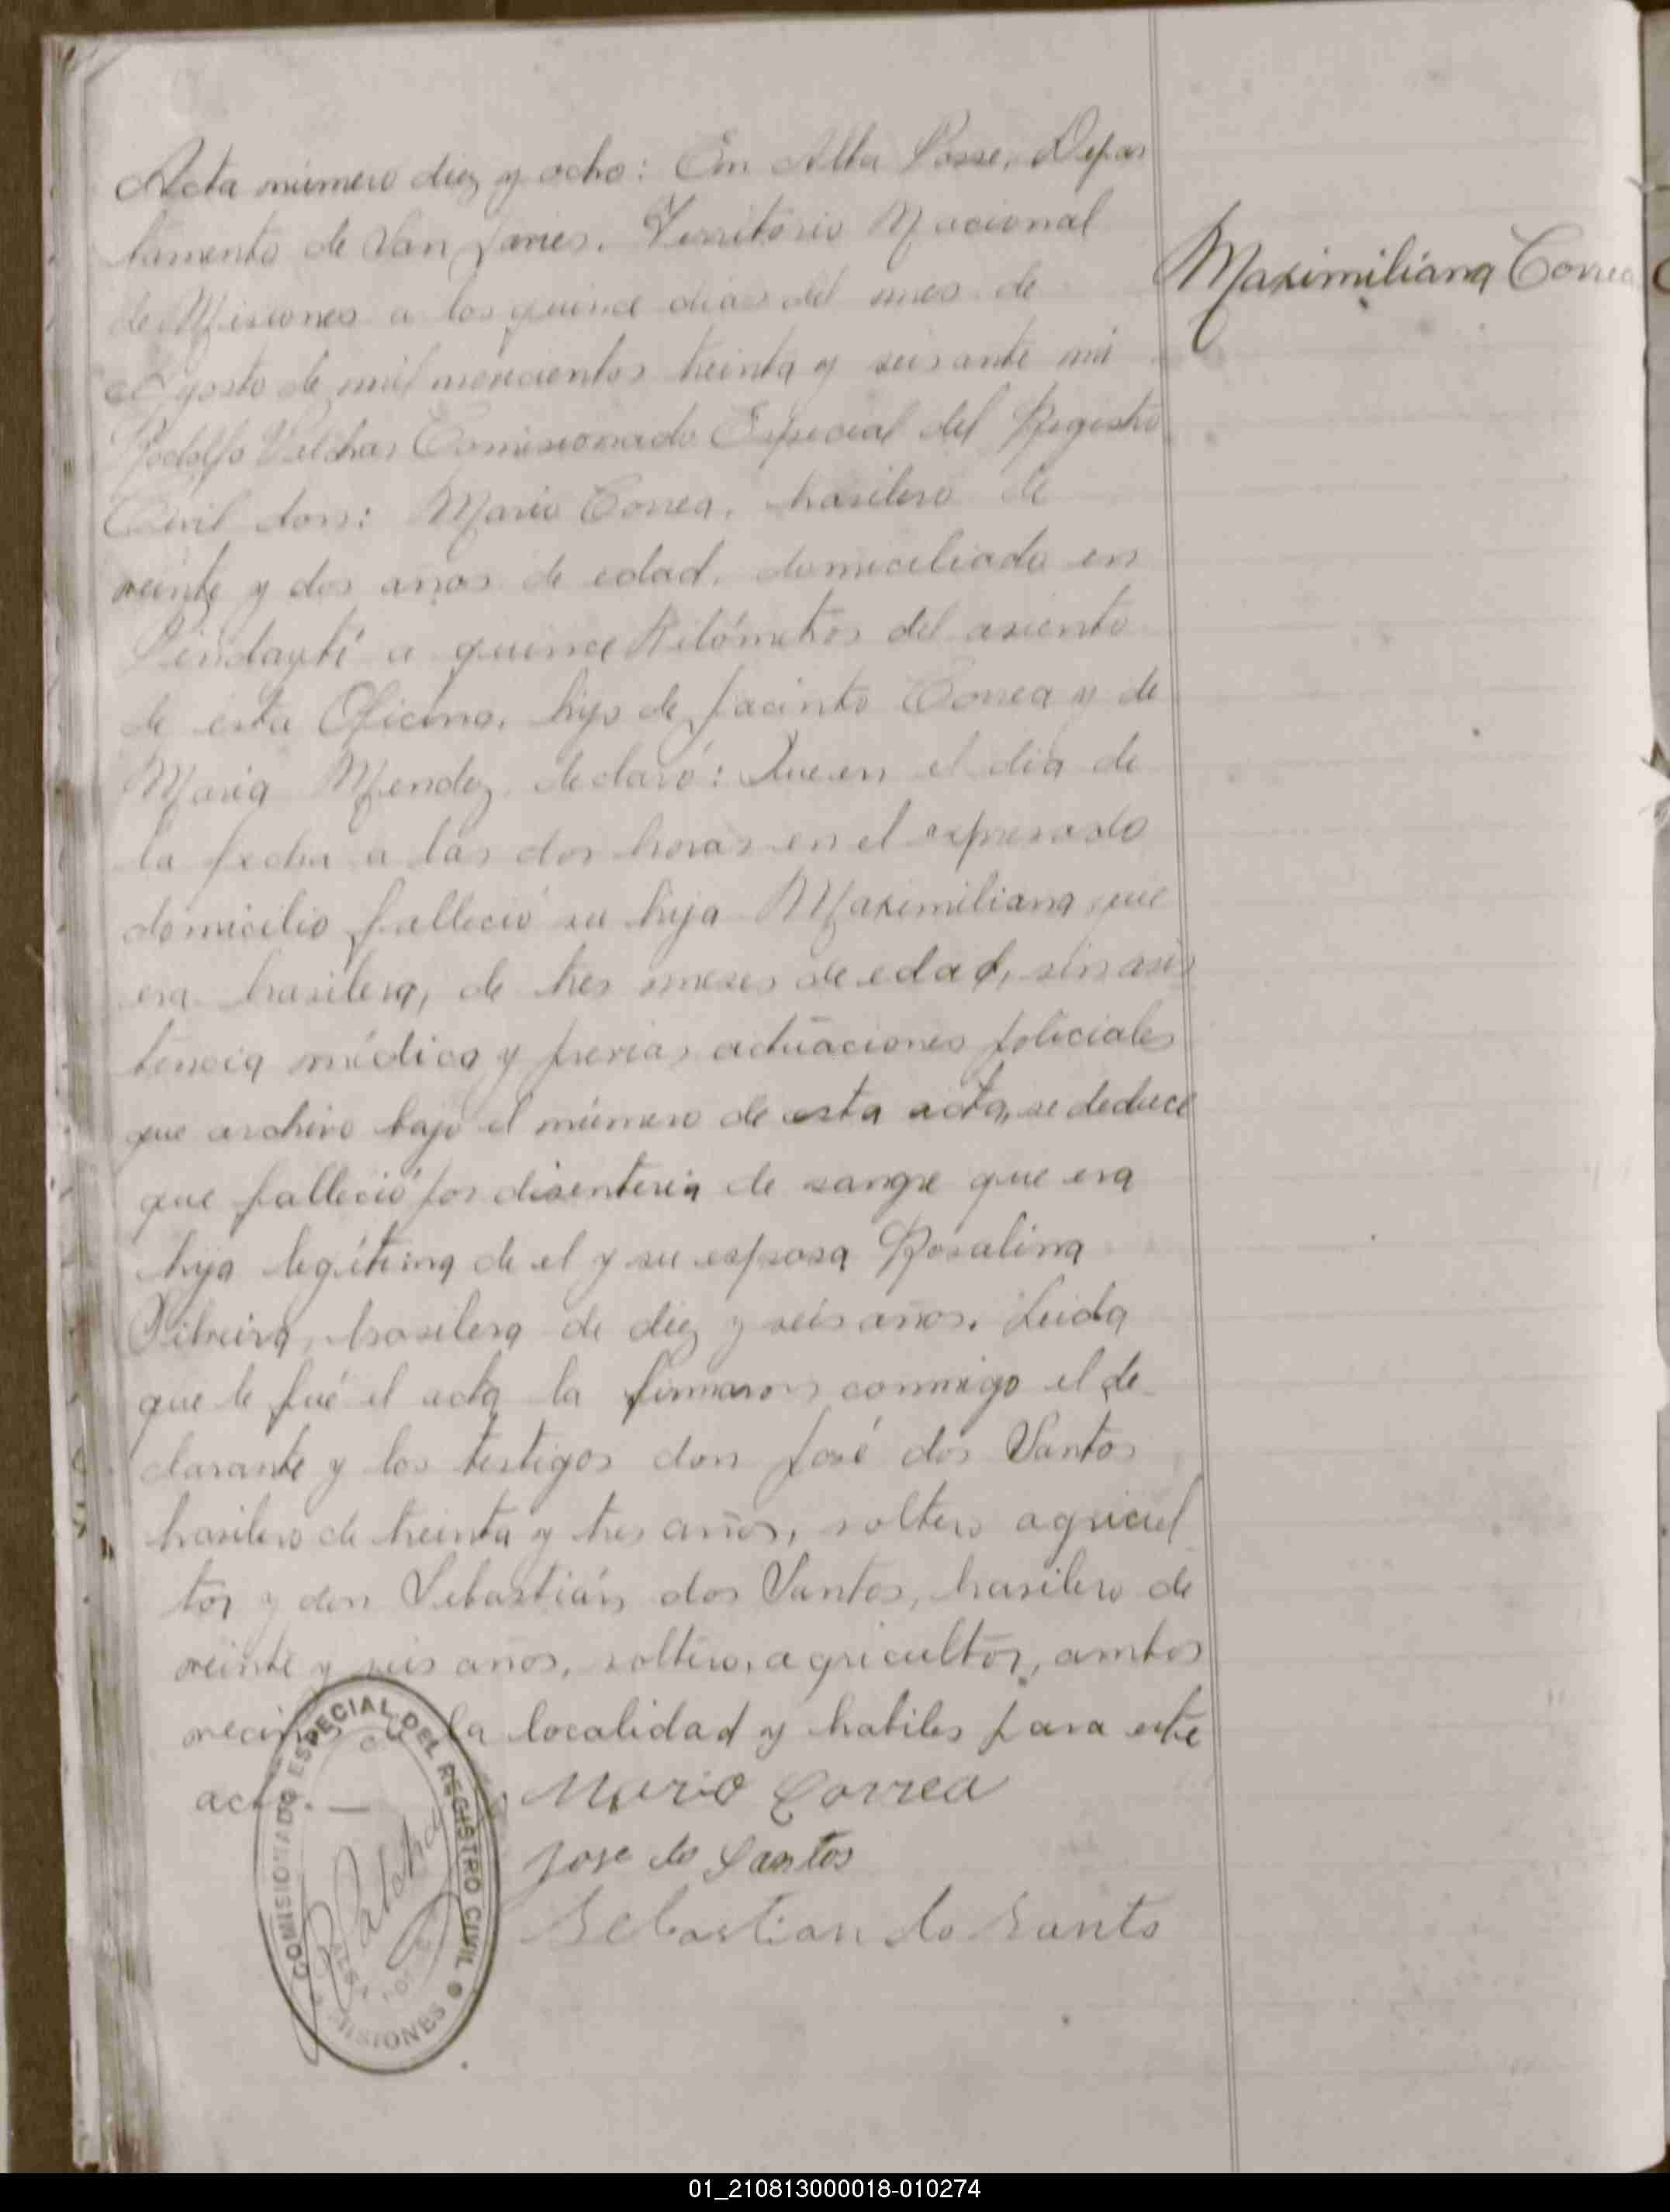 Acta número diez y ocho: En Alba Posse, Depar
tamento de San Javier, Territorio Nacional
de Misiones a los quince dias del mes de
Agosto de mil novecientos treinta y seis ante mi
Rodolfo Comisionado Especial del Registro
Civil don: Mario Correa, brasilero de
veinte y dos años de edad, domiciliado en
Pindaytí a quince Kilómetros del asiento
de esta Oficina, hijo de Jacinto Correa y de
Maria Mendez, declaró: Que en el dia de
la fecha a las dos horas en el expresado
domicilio falleció su hija Maximiliana que
era brasilera, de tres meses de edad, sin asis
tencia médica y previas actuaciones policiales
que archivo bajo el número de esta acta, se deduce
que falleció por disenteria de sangre que era
hija legítima de el y su esposa Rosalina
brasilera de diez y seis años. Leida
que le fué el acta la firmaron conmigo el de
clarante y los testigos don José dos Santos
brasilero de treinta y tres años, soltero agricul
tor y don Sebastián dos Santos, brasilero de
veinte y seis años, soltero, agricultor, ambos
vecinos de la localidad y habiles para este
acto. —
Mario Correa
Jose do Santos
Sebastian do Santo
Maximiliana Correa
COMISIONADO ESPECIAL DEL REGISTRO CIVIL
MISIONES
01_210813000018-010274